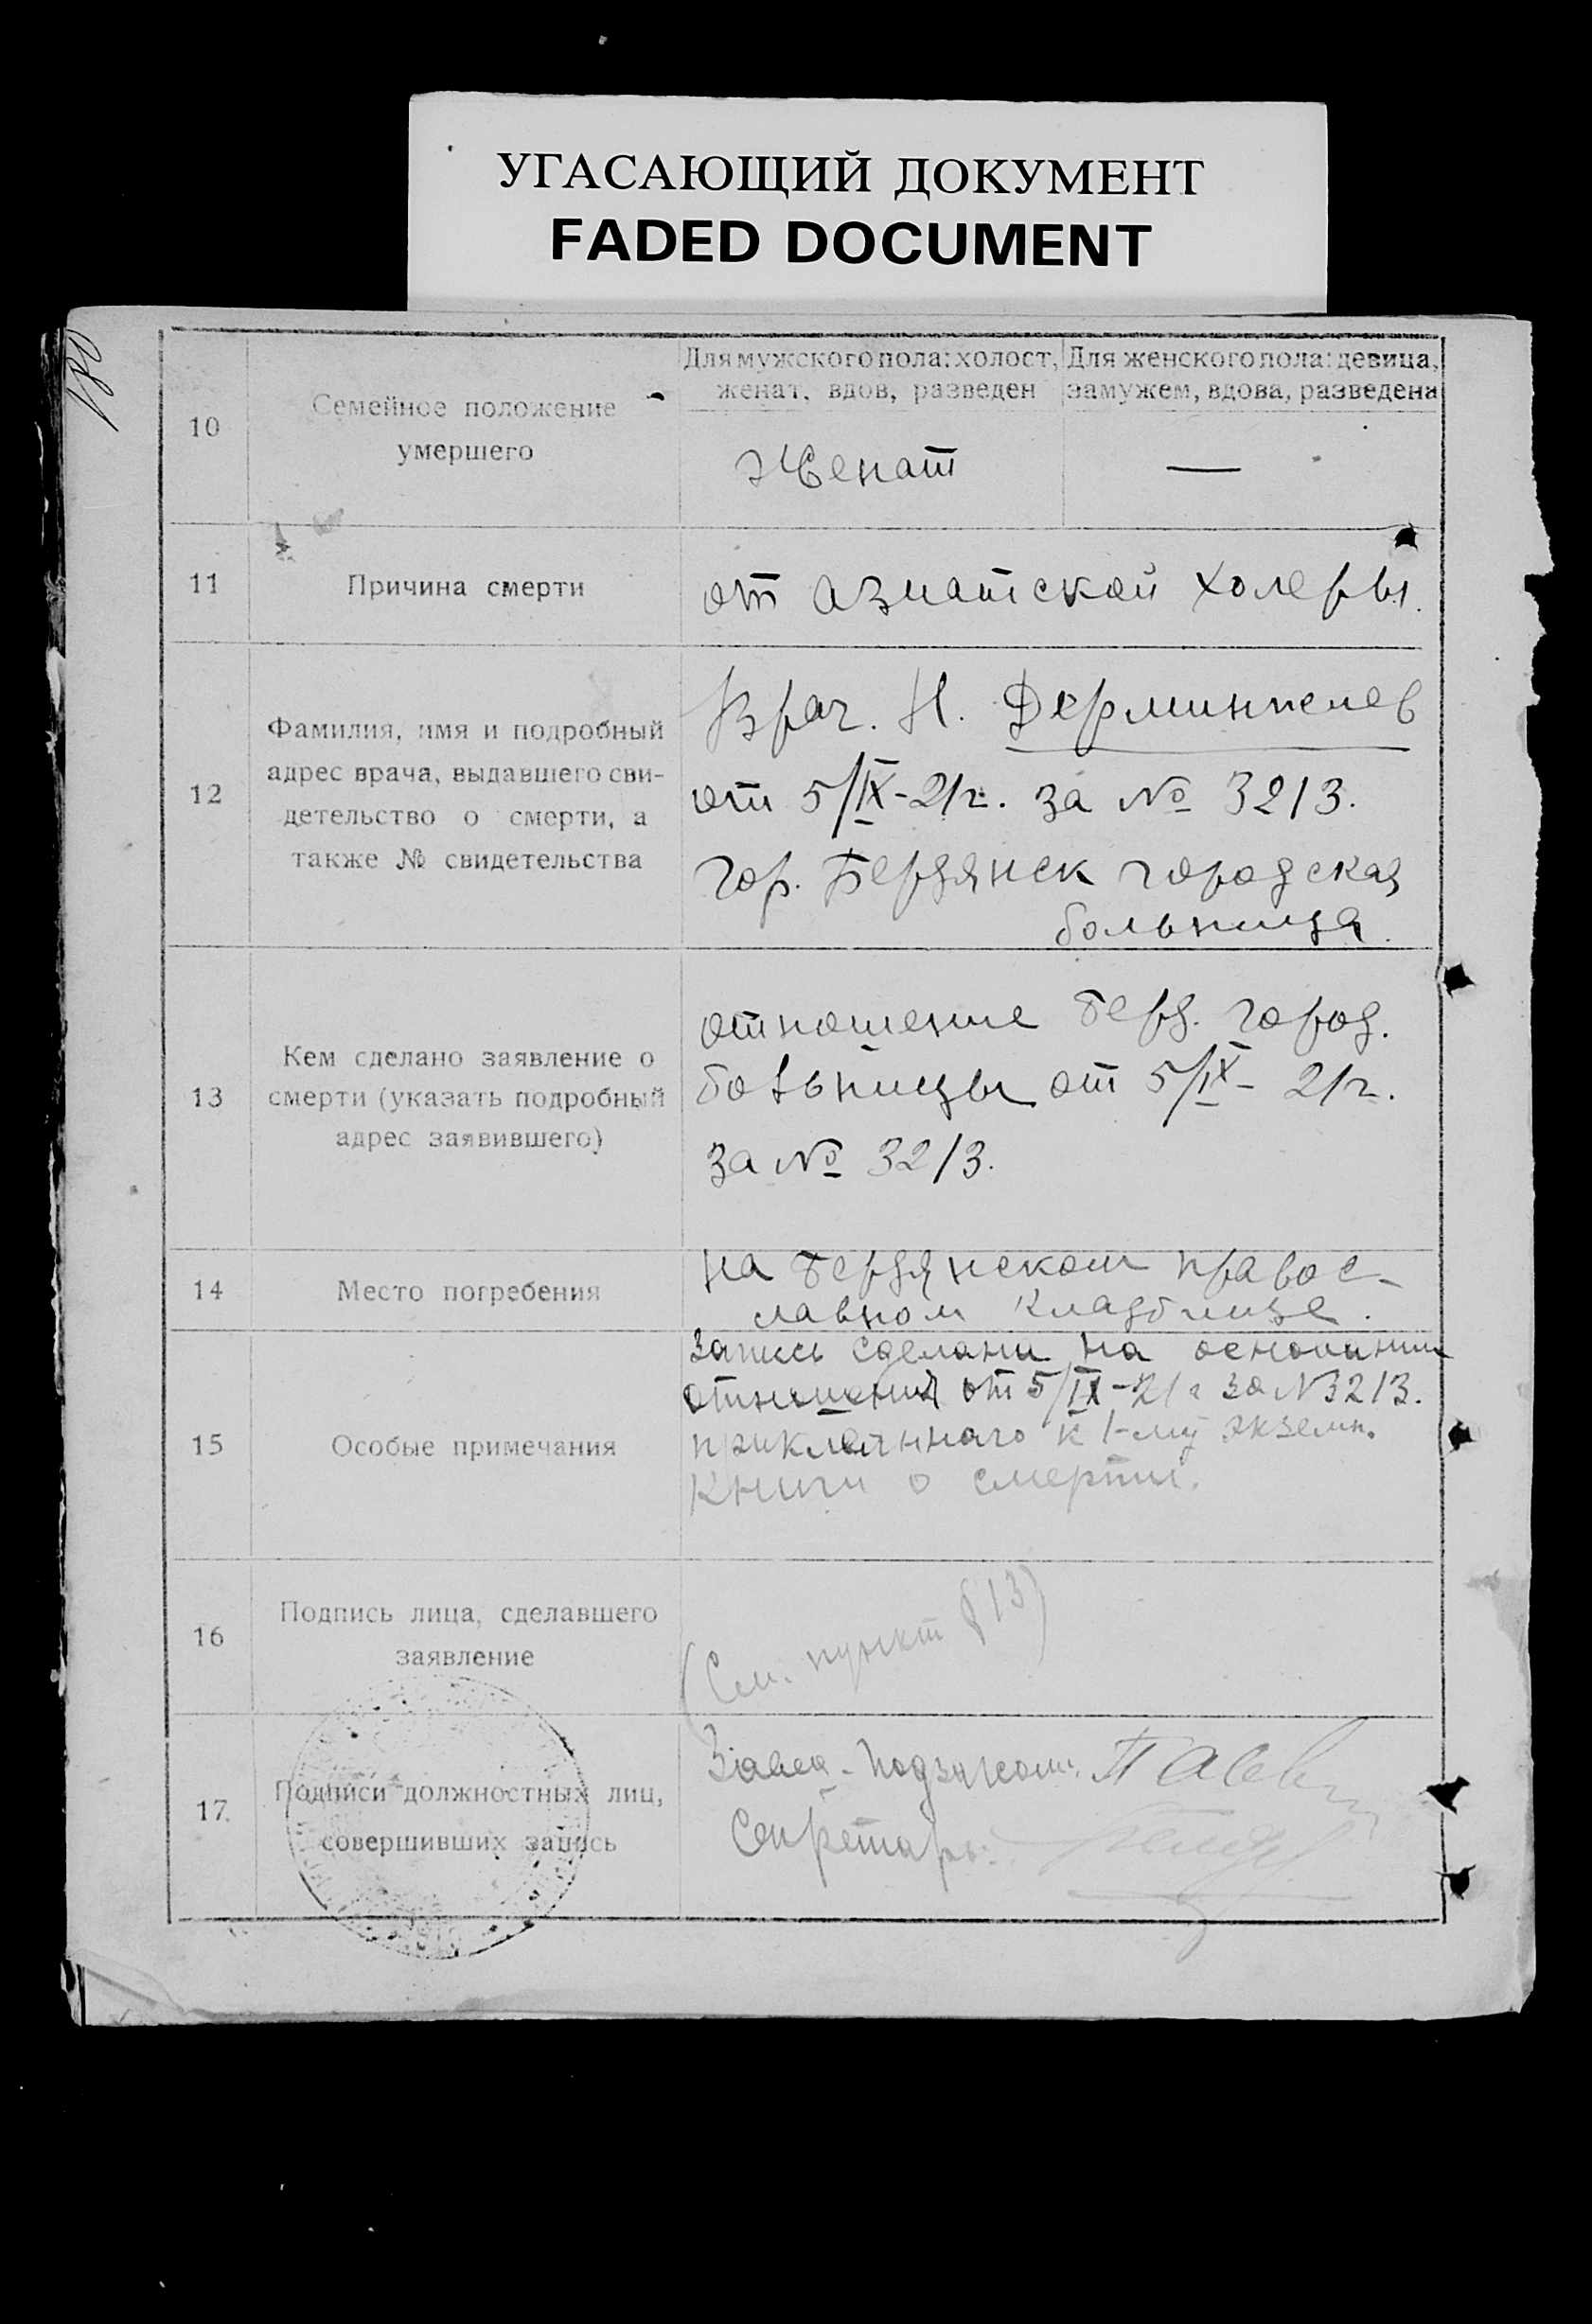 УГАСАЮЩИЙ ДОКУМЕНТ
FADED DOCUMENT
180
10
Семейное положение
умершего
Для мужского пола: холост,
женат, вдов, разведен
Для женского пола: девица,
замужем, вдова, разведена
Женат
—
11
Причина смерти
от азиатской холеры.
12
Фамилия, имя и подробный
адрес врача, выдавшего сви-
детельство о смерти, а
также № свидетельства
Врач. Н.
от 5/IX-21г. за № 3213.
гор. Бердянск городская
больница.
13
Кем сделано заявление о
смерти (указать подробный
адрес заявившего)
отношение Берд. город.
больницы от 5/IX- 21г.
за № 3213.
14
Место погребения
на Бердянском правос-
лавном кладбище.
15
Особые примечания
Запись сделана на основании
отношения от 5/IX-21г за N3213.
приклееннаго к 1-му экземп.
книги о смерти.
16
Подпись лица, сделавшего
заявление
(См. пункт § 13)
17.
Подписи должностных лиц,
совершивших запись
Завед.
Секретарь